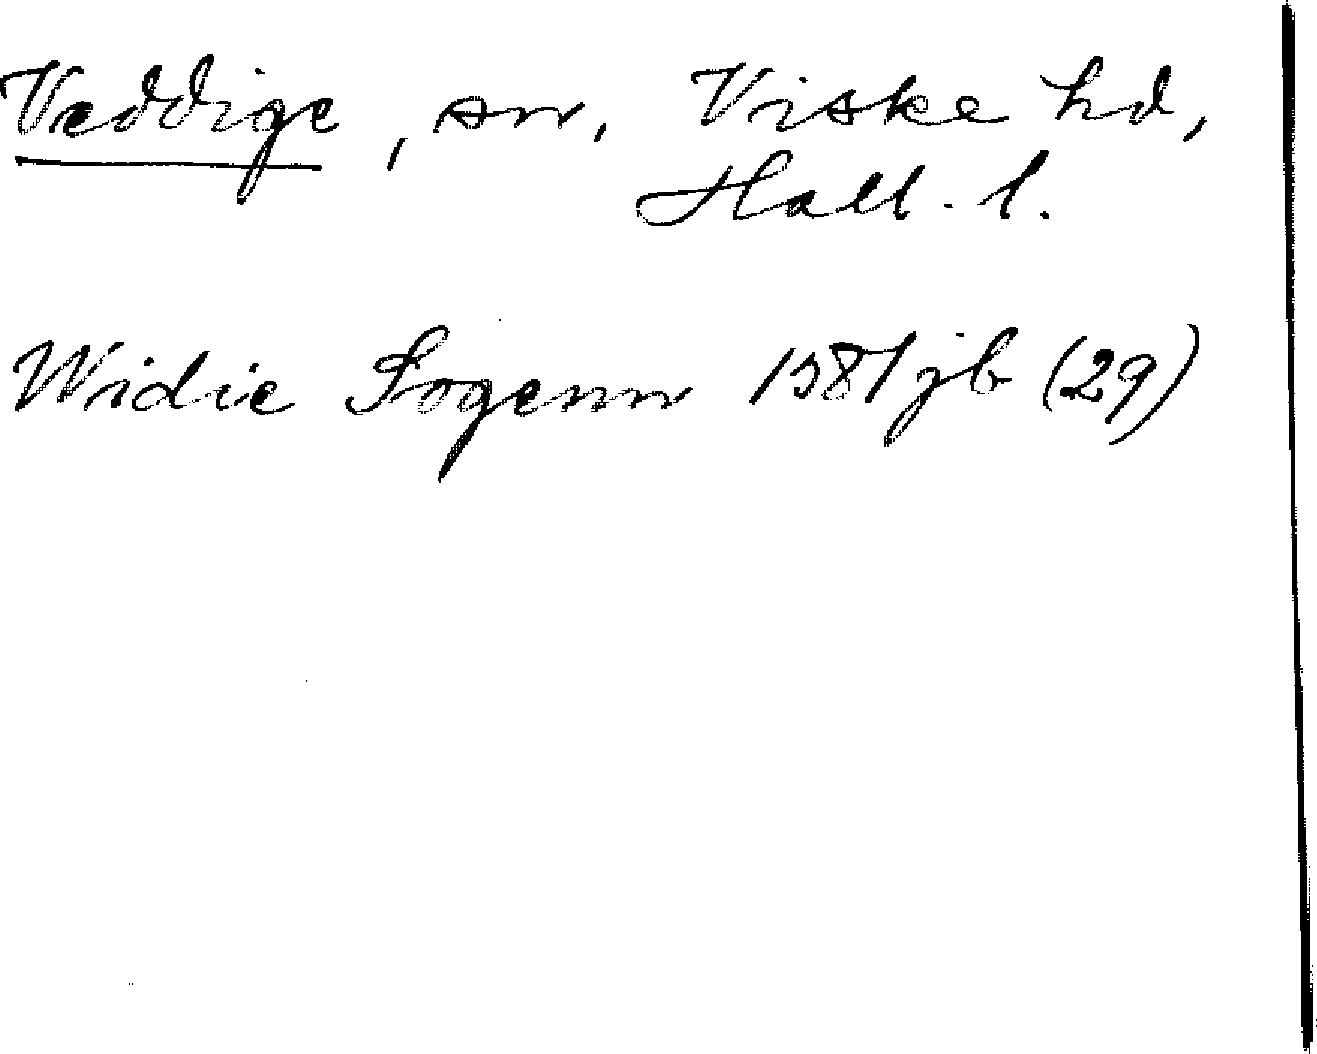 Veddige, sn, Viske hd,
Hall. l.
Widie Sogenn 1587 jb (29)